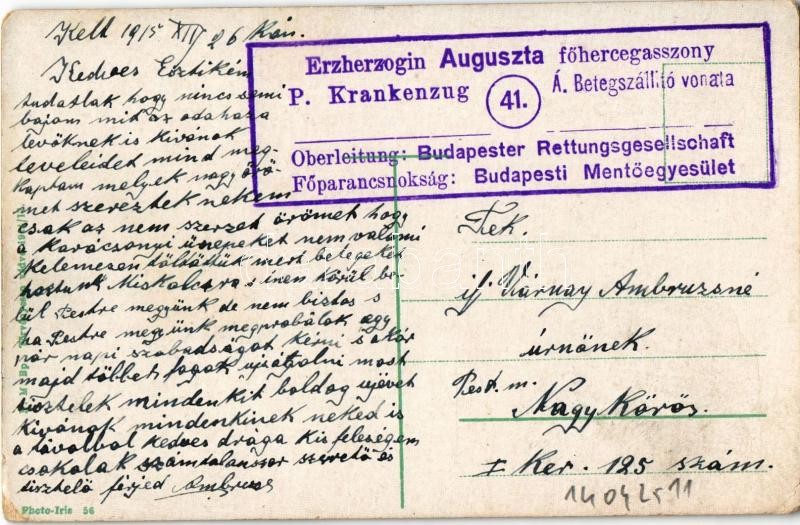 Kelt 1915 XII/26 kán.
Kedves Esztikém
tudatlak hogy nincs semi
bajom mit az odahaza
levöknek is kivánok
leveleidet mind meg-
kaptam melyek nagy örö-
met szereztek nekem
csak az nem szerzet örömet hogy
a karácsonyi ünepeket nem valami
kelemesen töltöttük mert betegeket
hoztunk Miskolcra s inen körül be-
lül Pestre megyünk de nem biztos s
ha Pestre megyünk megprobálok egy
pár napi szabadságot kérni s akór
majd többet fogok ujságolni most
tisztelek mindenkit boldog ujévet
kivánok mindenkinek neked is
a távolból kedves draga kis feleségem
csokolak számtalanszor szerető és
tisztelő férjed Ambrus
Photo-Iris 56
Erzherzogin Auguszta főhercegasszony
P. Krankenzug 41. Á. Betegszállító vonata
Oberleitung: Budapester Rettungsgesellschaft
Főparancsnokság: Budapesti Mentőegyesület
Tek.
ifj Várnay Ambruzsné
úrnőnek.
Pest. m.
Nagy Körös.
I Ker. 125 szám.